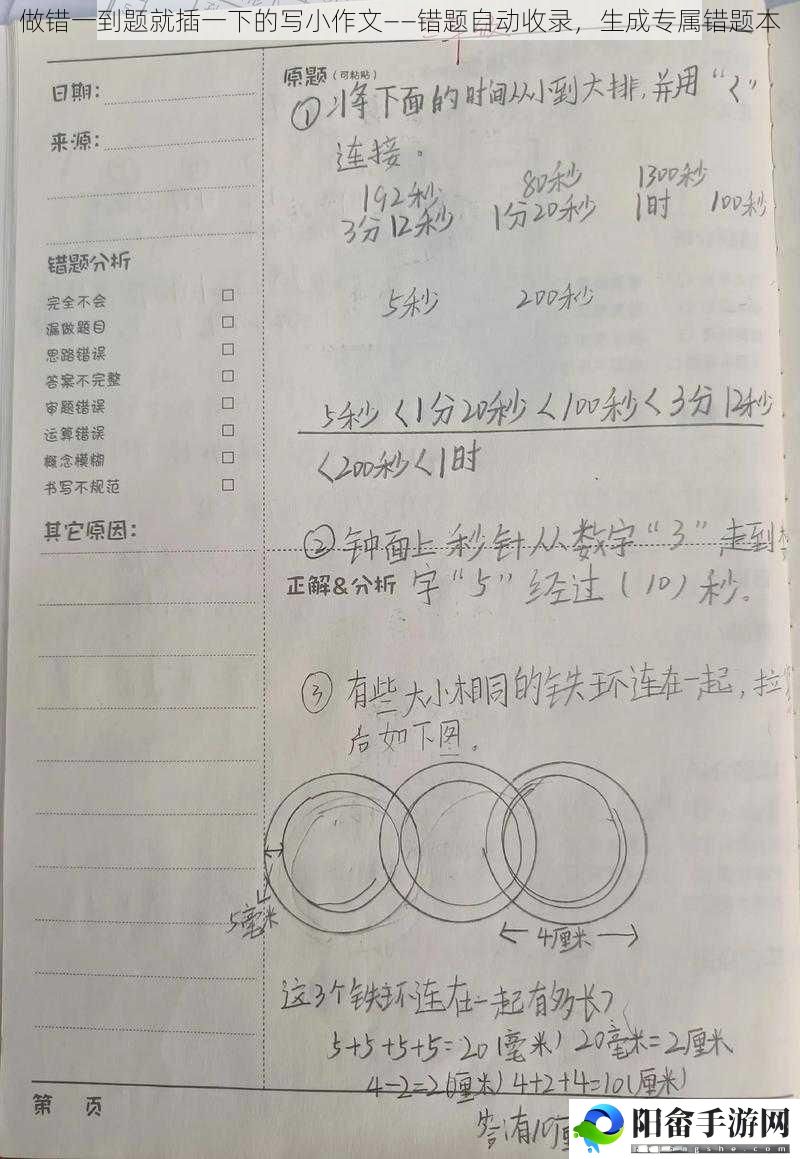 做错一到题就插一下的写小作文——错题自动收录，生成专属错题本
日期:
来源:
错题分析
完全不会
漏做题目
思路错误
答案不完整
审题错误
运算错误
概念模糊
书写不规范
其它原因:
第 页
原题(可粘贴)
①将下面的时间从小到大排,并用“<”
连接。
192秒 80秒 1300秒
3分12秒 1分20秒 1时 100秒
5秒 200秒
5秒<1分20秒<100秒<3分12秒
<200秒<1时
②钟面上秒针从数字“3”走到
正解&分析
字“5”经过(10)秒。
③有些大小相同的铁环连在一起,拉
后如下图。
5毫米
4厘米
这3个铁环连在一起有多长?
5+5+5+5=20(毫米) 20毫米=2厘米
4-2=2(厘米) 4+2+4=10(厘米)
答:有10厘
阳畲手游网